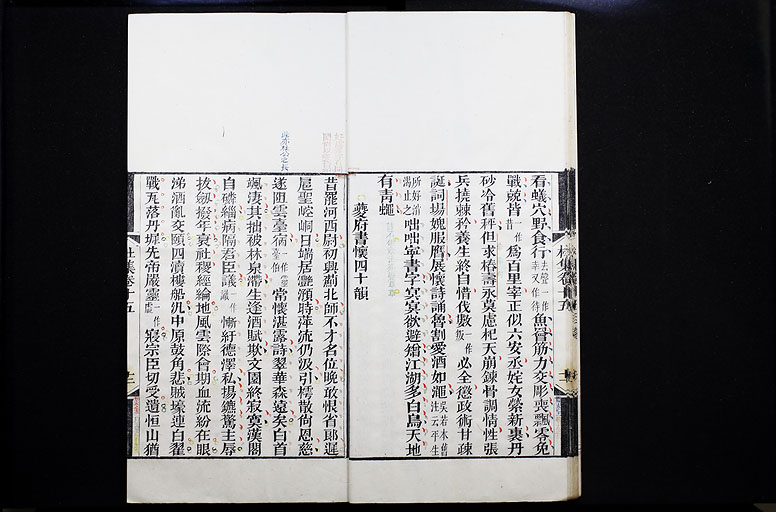 看蟻穴野食行去聲一作幸又作待魚罾筋力交彫喪飄零免
戰兢皆一作昔為百里宰正似六安丞姹女縈新裹丹
砂冷舊秤但求椿壽永莫慮杞天崩鍊骨調情性張
兵撓棘矜養生終自惜伐數一作叛必全懲政術甘疎
誕詞場媿服膺展懷詩誦魯割愛酒如澠吳若本舊注云平生
所好消渴止之咄咄寧書字冥冥欲避矰江湖多白鳥天地
有青蠅
夔府書懷四十韻
昔罷河西尉初興薊北師不才名位晚敢恨省郎遲
扈聖崆峒日端居灩澦時萍流仍汲引樗散尚恩慈
遂阻雲臺宿常懷湛露詩翠華森遠矣白首
颯淒其拙被林泉滯生逢酒賦欺文園終寂寞漢閣
自磷緇病隔君臣議慚紆德澤私揚鑣驚主辱
拔劍撥年衰社稷經綸地風雲際會期血流紛在眼
涕洒亂交頤四瀆樓船汎中原鼓角悲賊壕連白翟
戰瓦落丹墀先帝嚴靈寢宗臣切受遺恒山猶
杜集卷十五